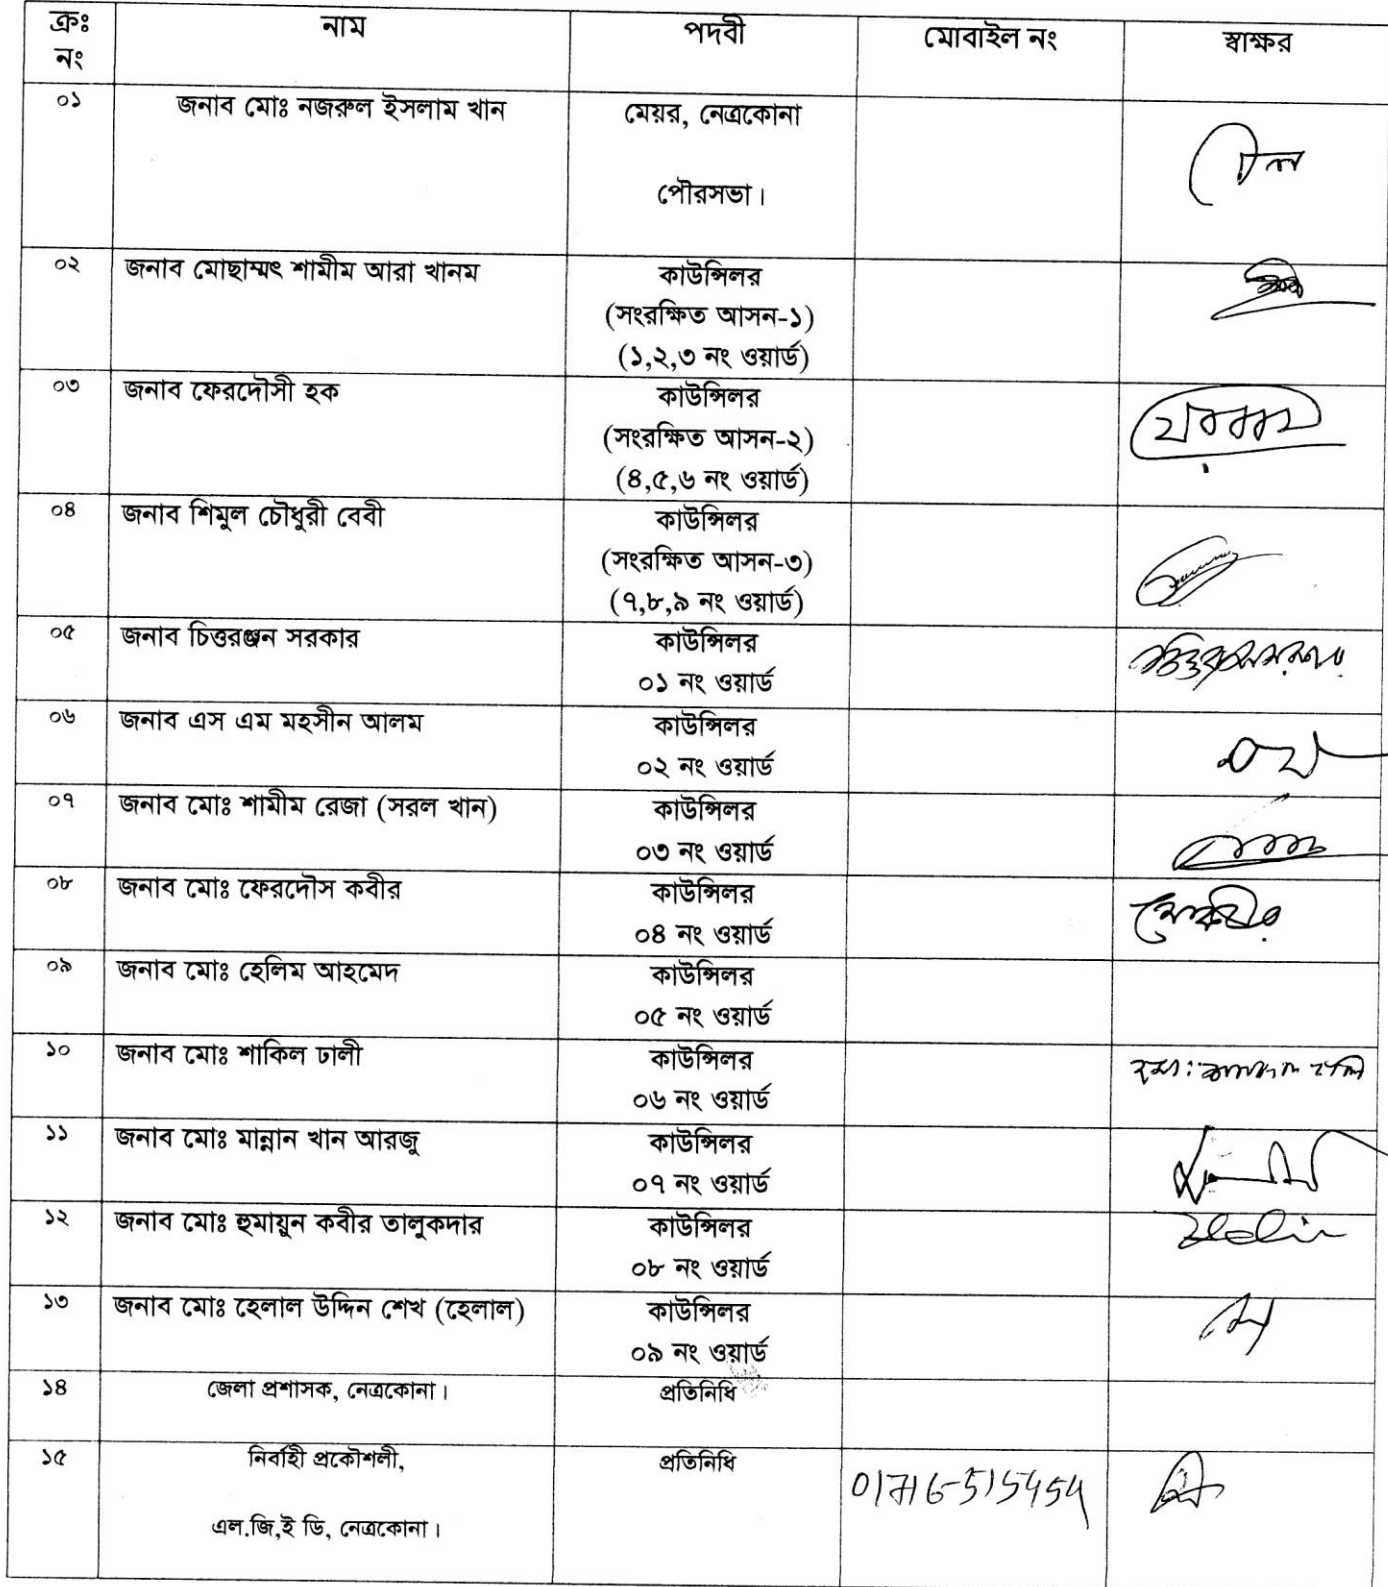 ক্রঃ নং নাম পদবী মোবাইল নং স্বাক্ষর
০১ জনাব মোঃ নজরুল ইসলাম খান মেয়র, নেত্রকোনা
পৌরসভা।
০২ জনাব মোছাম্মৎ শামীম আরা খানম কাউন্সিলর
(সংরক্ষিত আসন-১)
(১,২,৩ নং ওয়ার্ড)
০৩ জনাব ফেরদৌসী হক কাউন্সিলর
(সংরক্ষিত আসন-২)
(৪,৫,৬ নং ওয়ার্ড)
০৪ জনাব শিমুল চৌধুরী বেবী কাউন্সিলর
(সংরক্ষিত আসন-৩)
(৭,৮,৯ নং ওয়ার্ড)
০৫ জনাব চিত্তরঞ্জন সরকার কাউন্সিলর
০১ নং ওয়ার্ড
০৬ জনাব এস এম মহসীন আলম কাউন্সিলর
০২ নং ওয়ার্ড
০৭ জনাব মোঃ শামীম রেজা (সরল খান) কাউন্সিলর
০৩ নং ওয়ার্ড
০৮ জনাব মোঃ ফেরদৌস কবীর কাউন্সিলর
০৪ নং ওয়ার্ড
০৯ জনাব মোঃ হেলিম আহমেদ কাউন্সিলর
০৫ নং ওয়ার্ড
১০ জনাব মোঃ শাকিল ঢালী কাউন্সিলর
০৬ নং ওয়ার্ড
১১ জনাব মোঃ মান্নান খান আরজু কাউন্সিলর
০৭ নং ওয়ার্ড
১২ জনাব মোঃ হুমায়ুন কবীর তালুকদার কাউন্সিলর
০৮ নং ওয়ার্ড
১৩ জনাব মোঃ হেলাল উদ্দিন শেখ (হেলাল) কাউন্সিলর
০৯ নং ওয়ার্ড
১৪ জেলা প্রশাসক, নেত্রকোনা। প্রতিনিধি
১৫ নির্বাহী প্রকৌশলী, প্রতিনিধি 01716-515454
এল.জি,ই ডি, নেত্রকোনা।